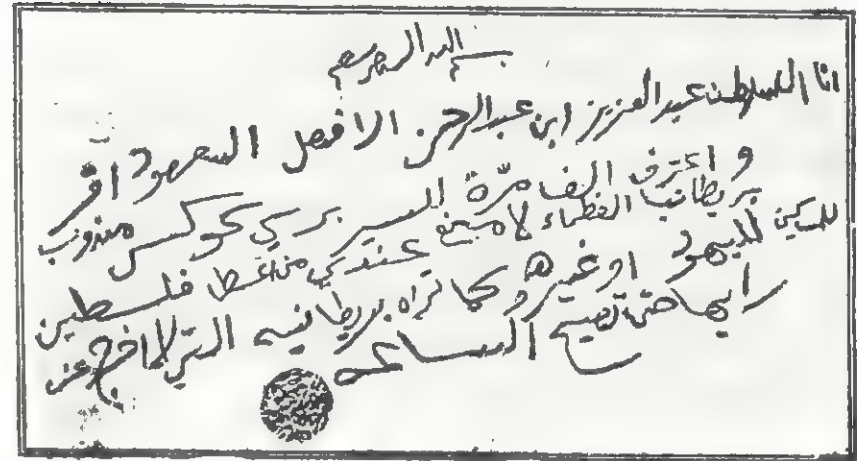 بسم الله الرحمن الرحيم
انا السلطان عبد العزيز ابن عبد الرحمن الافصل السعود اقر
و اعترف الف مرّة السير برسي كوكس مندوب
بريطانيا العظماء لا منع عندي من اعطا فلسطين
للمساكين لليهود او غيرهم كما تراه بريطانيه التي لا اخرج عن
رايها حتى تصيح الساعه